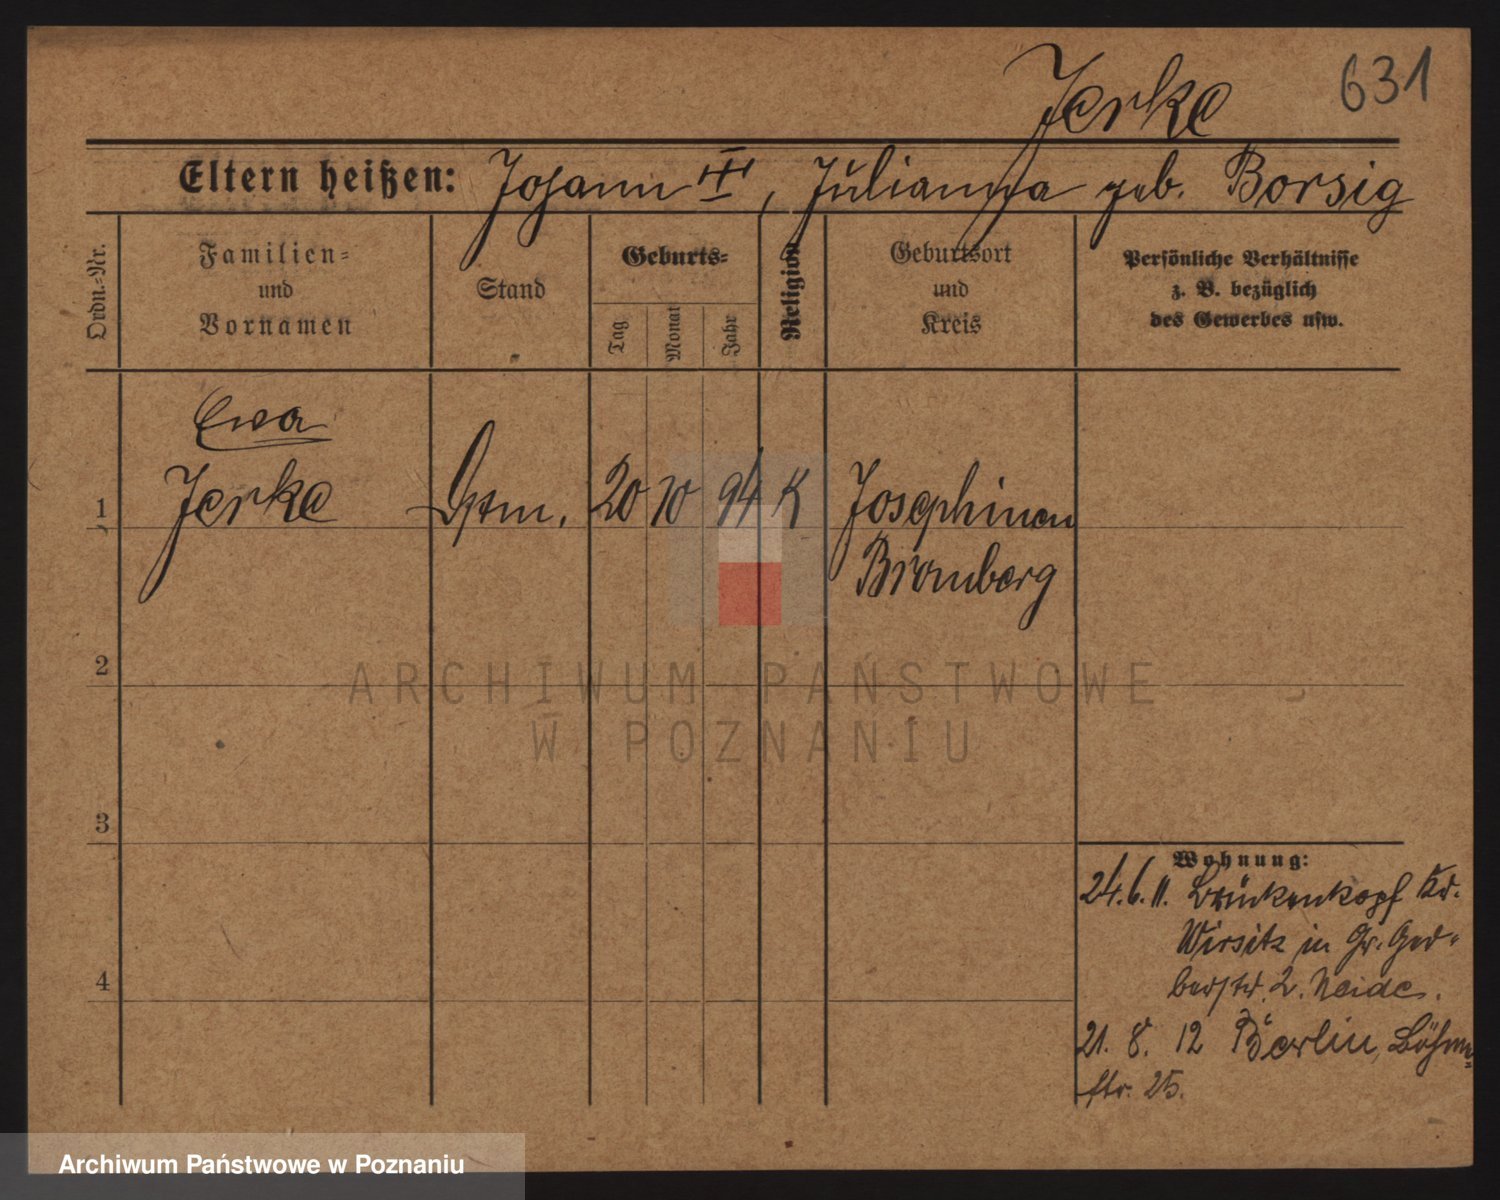 Jerke 631
Eltern heißen: Johann III, Julianna geb. Borsig
Ordn.-Nr.
Familien-
und
Vornamen
Stand
Geburts-
Tag
Monat
Jahr
Religion
Geburtsort
und
Kreis
Persönliche Verhältnisse
z. B. bezüglich
des Gewerbes usw.
Ewa
1 Jerke 20 10 94 K Josephinen
Bromberg
2
3
4
Wohnung:
24.6.11. Brückenkopf Kr.
Wirsitz in Gr. Ger-
berstr. 2. Neide.
21. 8. 12 Berlin, Böhm-
str. 25.
ARCHIWUM PAŃSTWOWE
W POZNANIU
Archiwum Państwowe w Poznaniu